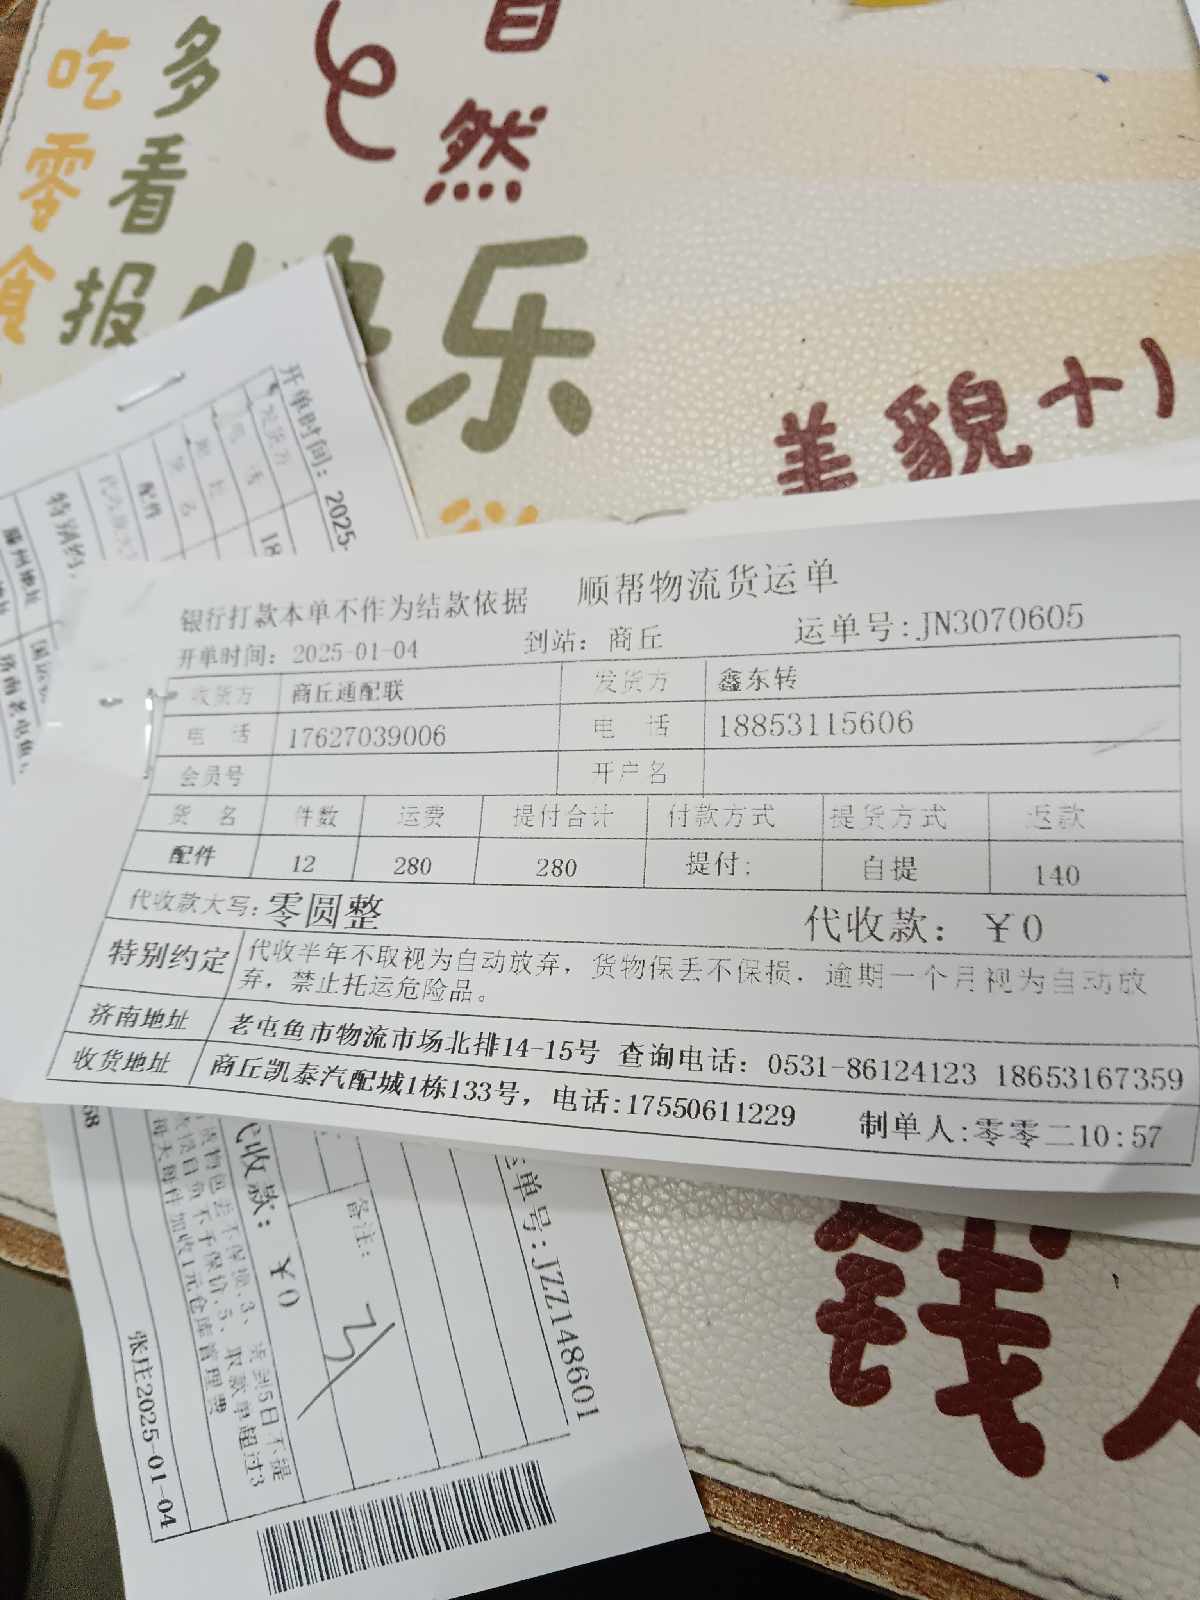 吃零食
多看报
自然
快乐
美貌+1
开单时间：2025-
18
配件
特别约
滕州地址
济南老屯鱼
银行打款本单不作为结款依据 顺帮物流货运单
开单时间：2025-01-04 到站：商丘 运单号:JN3070605
收货方 商丘通配联 发货方 鑫东转
电 话 17627039006 电 话 18853115606
会员号 开户名
货 名 件数 运费 提付合计 付款方式 提货方式 返款
配件 12 280 280 提付: 自提 140
代收款大写:零圆整 代收款：￥0
特别约定 代收半年不取视为自动放弃，货物保丢不保损，逾期一个月视为自动放
弃，禁止托运危险品。
济南地址 老屯鱼市物流市场北排14-15号 查询电话：0531-86124123 18653167359
收货地址 商丘凯泰汽配城1栋133号，电话:17550611229 制单人:零零二10:57
单号:JZZ148601
备注：
收款：￥0
货物包丢不保损.3、货到5日不提
不予保价.5、取款单超过3
每天每件加收1元仓库管理费
张庄2025-01-04
钱